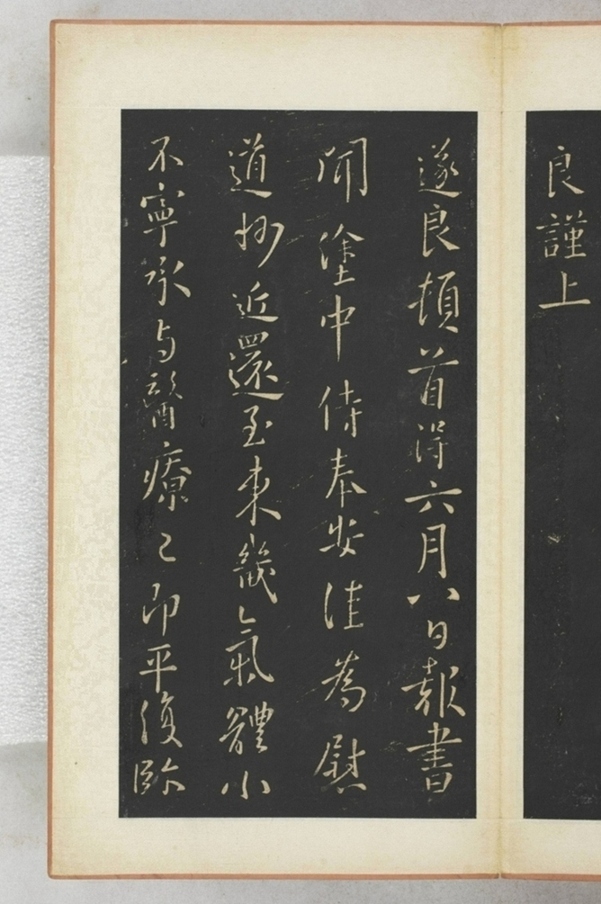 良謹上
遂良頓首得六月八日報書
聞塗中侍奉安佳為慰
道妙近還至來幾氣體小
不寧承与醫療々即平復